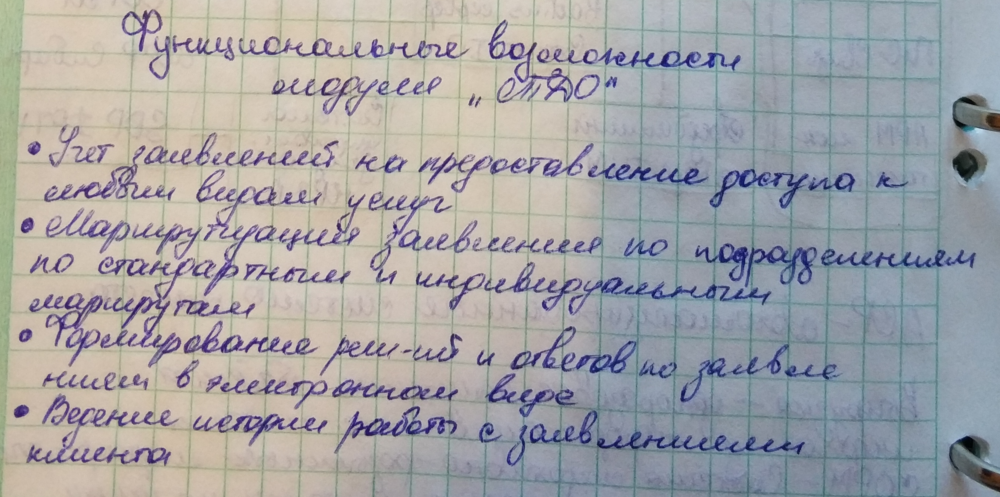 Функциональные возможности
модуля „СТДО"
• Учет заявлений на предоставление доступа к
любым видам услуг
• Маршрутизация заявления по подразделениям
по стандартным и индивидуальным
маршрутам
• Формирование реш-ий и ответов по заявле
ниям в электронном виде
• Ведение истории работы с заявлениями
клиента